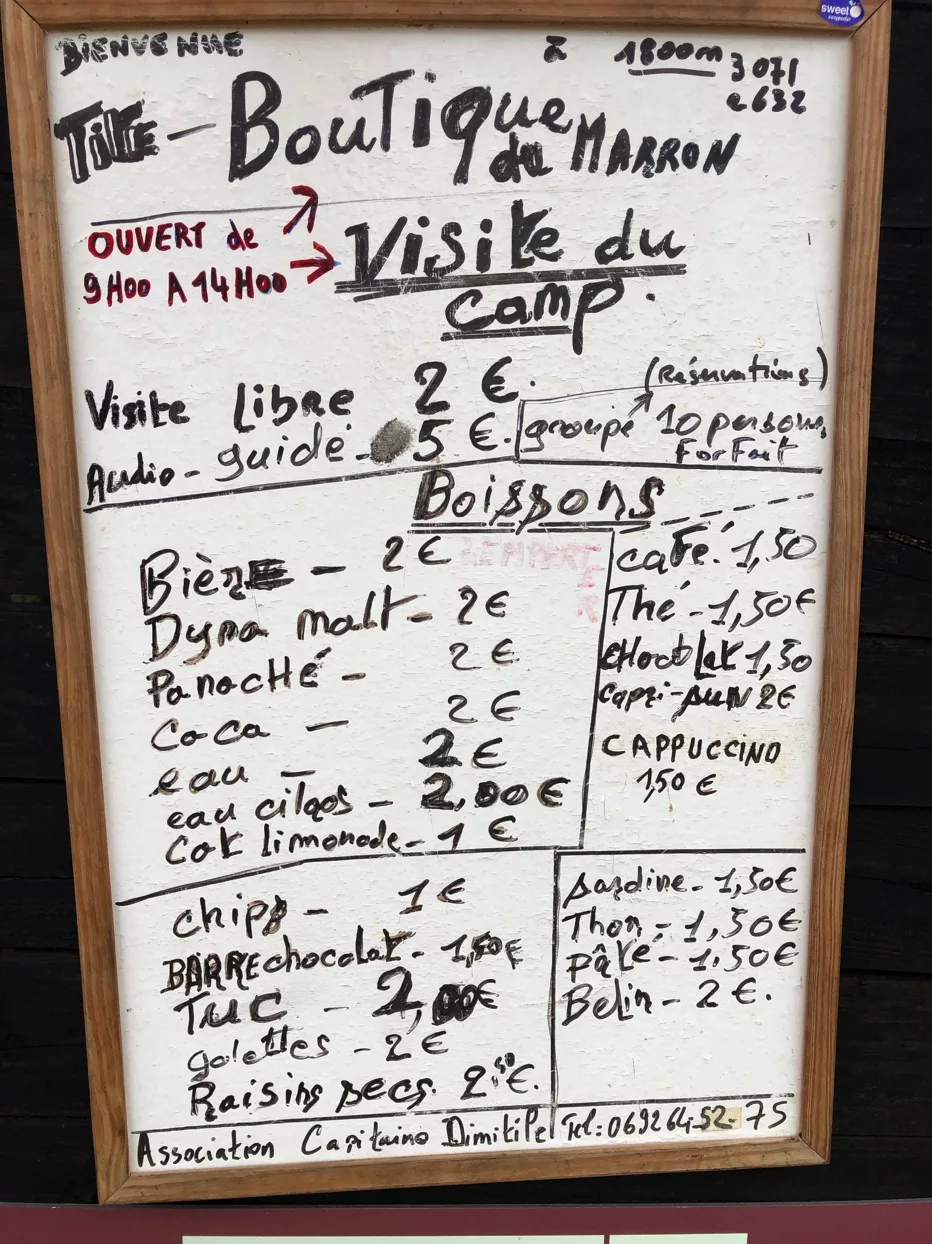 sweet
BiENVENUE
à 1800m
3 071
Tite - BouTique
du MARRON
OUVERT de
9H00 A 14H00
Visite du
camp.
Visite Libre 2 €.
(Réservations)
Audio - guidé - 5 €.
groupé 10 persons
ForFait
Boissons
Bière - 2 €
Dyna malt - 2 €
PanacHé - 2 €
Coca - 2 €
eau - 2 €
eau cilaos - 2,00 €
Cot limonade - 1 €
café. 1,50
Thé - 1,50€
cHocoLat 1,50
capri-suN 2€
CAPPUCCINO
1,50 €
chips - 1 €
BARRE chocolat - 1,50€
TUC - 2,00€
galettes - 2 €
Raisins secs. 2.50 €.
sardine - 1,50€
Thon - 1,50€
pâté - 1.50€
Belin - 2 €.
Association Capitaine Dimitile Tel: 069264-52-75